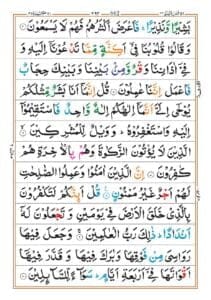 بَشِيْرًا وَّنَذِيْرًا ۚ فَاَعْرَضَ اَكْثَرُهُمْ فَهُمْ لَا يَسْمَعُوْنَ
وَقَالُوْا قُلُوْبُنَا فِيْۤ اَكِنَّةٍ مِّمَّا تَدْعُوْنَاۤ اِلَيْهِ وَ
فِيْۤ اٰذَانِنَا وَقْرٌ وَّمِنْۢ بَيْنِنَا وَبَيْنِكَ حِجَابٌ
فَاعْمَلْ اِنَّنَا عٰمِلُوْنَ قُلْ اِنَّمَاۤ اَنَا بَشَرٌ مِّثْلُكُمْ
يُوْحٰۤى اِلَيَّ اَنَّمَاۤ اِلٰهُكُمْ اِلٰهٌ وَّاحِدٌ فَاسْتَقِيْمُوْۤا
اِلَيْهِ وَاسْتَغْفِرُوْهُ ؕ وَوَيْلٌ لِّلْمُشْرِكِيْنَ
الَّذِيْنَ لَا يُؤْتُوْنَ الزَّكٰوةَ وَهُمْ بِالْاٰخِرَةِ هُمْ
كٰفِرُوْنَ اِنَّ الَّذِيْنَ اٰمَنُوْا وَعَمِلُوا الصّٰلِحٰتِ
لَهُمْ اَجْرٌ غَيْرُ مَمْنُوْنٍ قُلْ اَئِنَّكُمْ لَتَكْفُرُوْنَ
بِالَّذِيْ خَلَقَ الْاَرْضَ فِيْ يَوْمَيْنِ وَتَجْعَلُوْنَ لَهٗۤ
اَنْدَادًا ؕ ذٰلِكَ رَبُّ الْعٰلَمِيْنَ وَجَعَلَ فِيْهَا
رَوَاسِيَ مِنْ فَوْقِهَا وَبٰرَكَ فِيْهَا وَقَدَّرَ فِيْهَاۤ
اَقْوَاتَهَا فِيْۤ اَرْبَعَةِ اَيَّامٍ ؕ سَوَآءً لِّلسَّآئِلِيْنَ